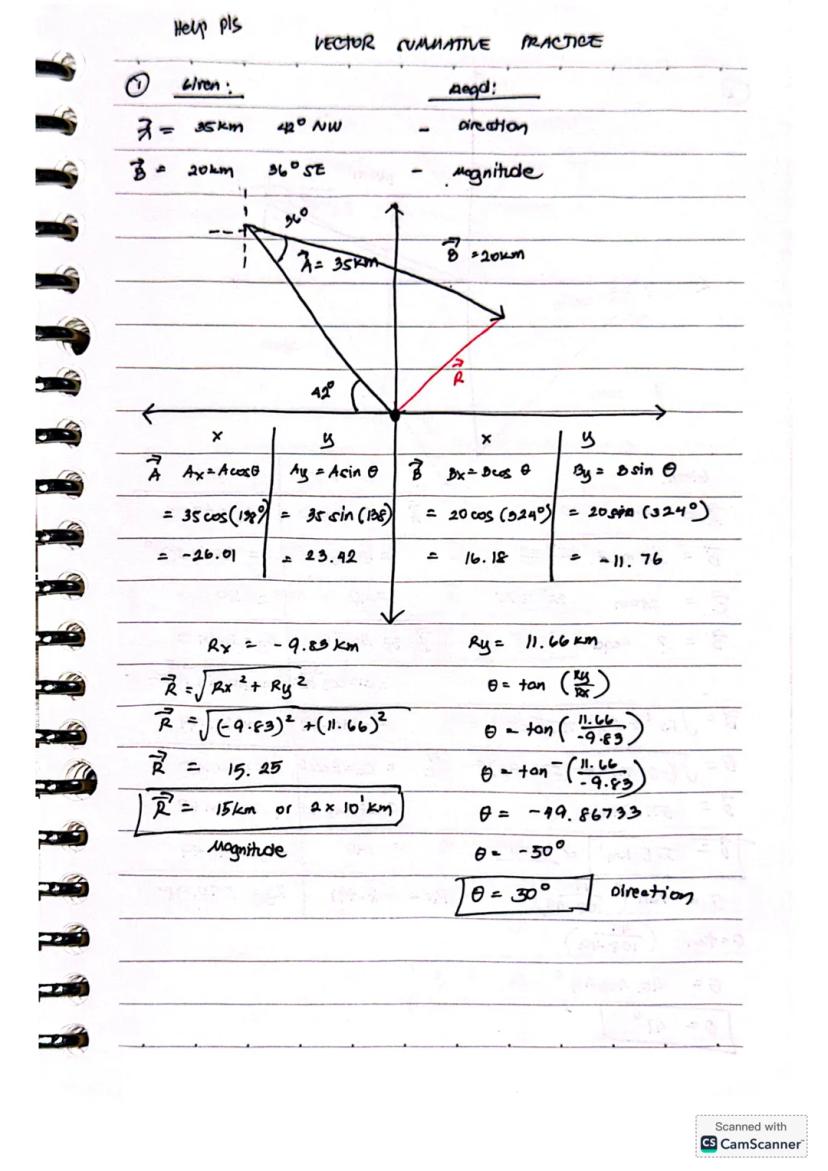 Help pls
VECTOR SUMMATIVE PRACTICE
① Given: Reqd:
A = 35km 42° NW - Direction
B = 20km 36° SE - Magnitude
36°
A = 35km
B = 20km
R
42°
x y x y
A Ax = Acosθ Ay = Asin θ B Bx = Bcos θ By = B sin θ
= 35 cos(138°) = 35 sin (138) = 20 cos (324°) = 20 sin (324°)
= -26.01 = 23.42 = 16.18 = -11.76
Rx = -9.83 km Ry = 11.66 km
R = √Rx² + Ry² θ = tan (Ry/Rx)
R = √(-9.83)² + (11.66)² θ = tan (11.66/-9.83)
R = 15.25 θ = tan⁻ (11.66/-9.83)
R = 15km or 2 x 10¹ km θ = -49.86733
Magnitude θ = -50°
θ = 30° Direction
Scanned with
CS CamScanner